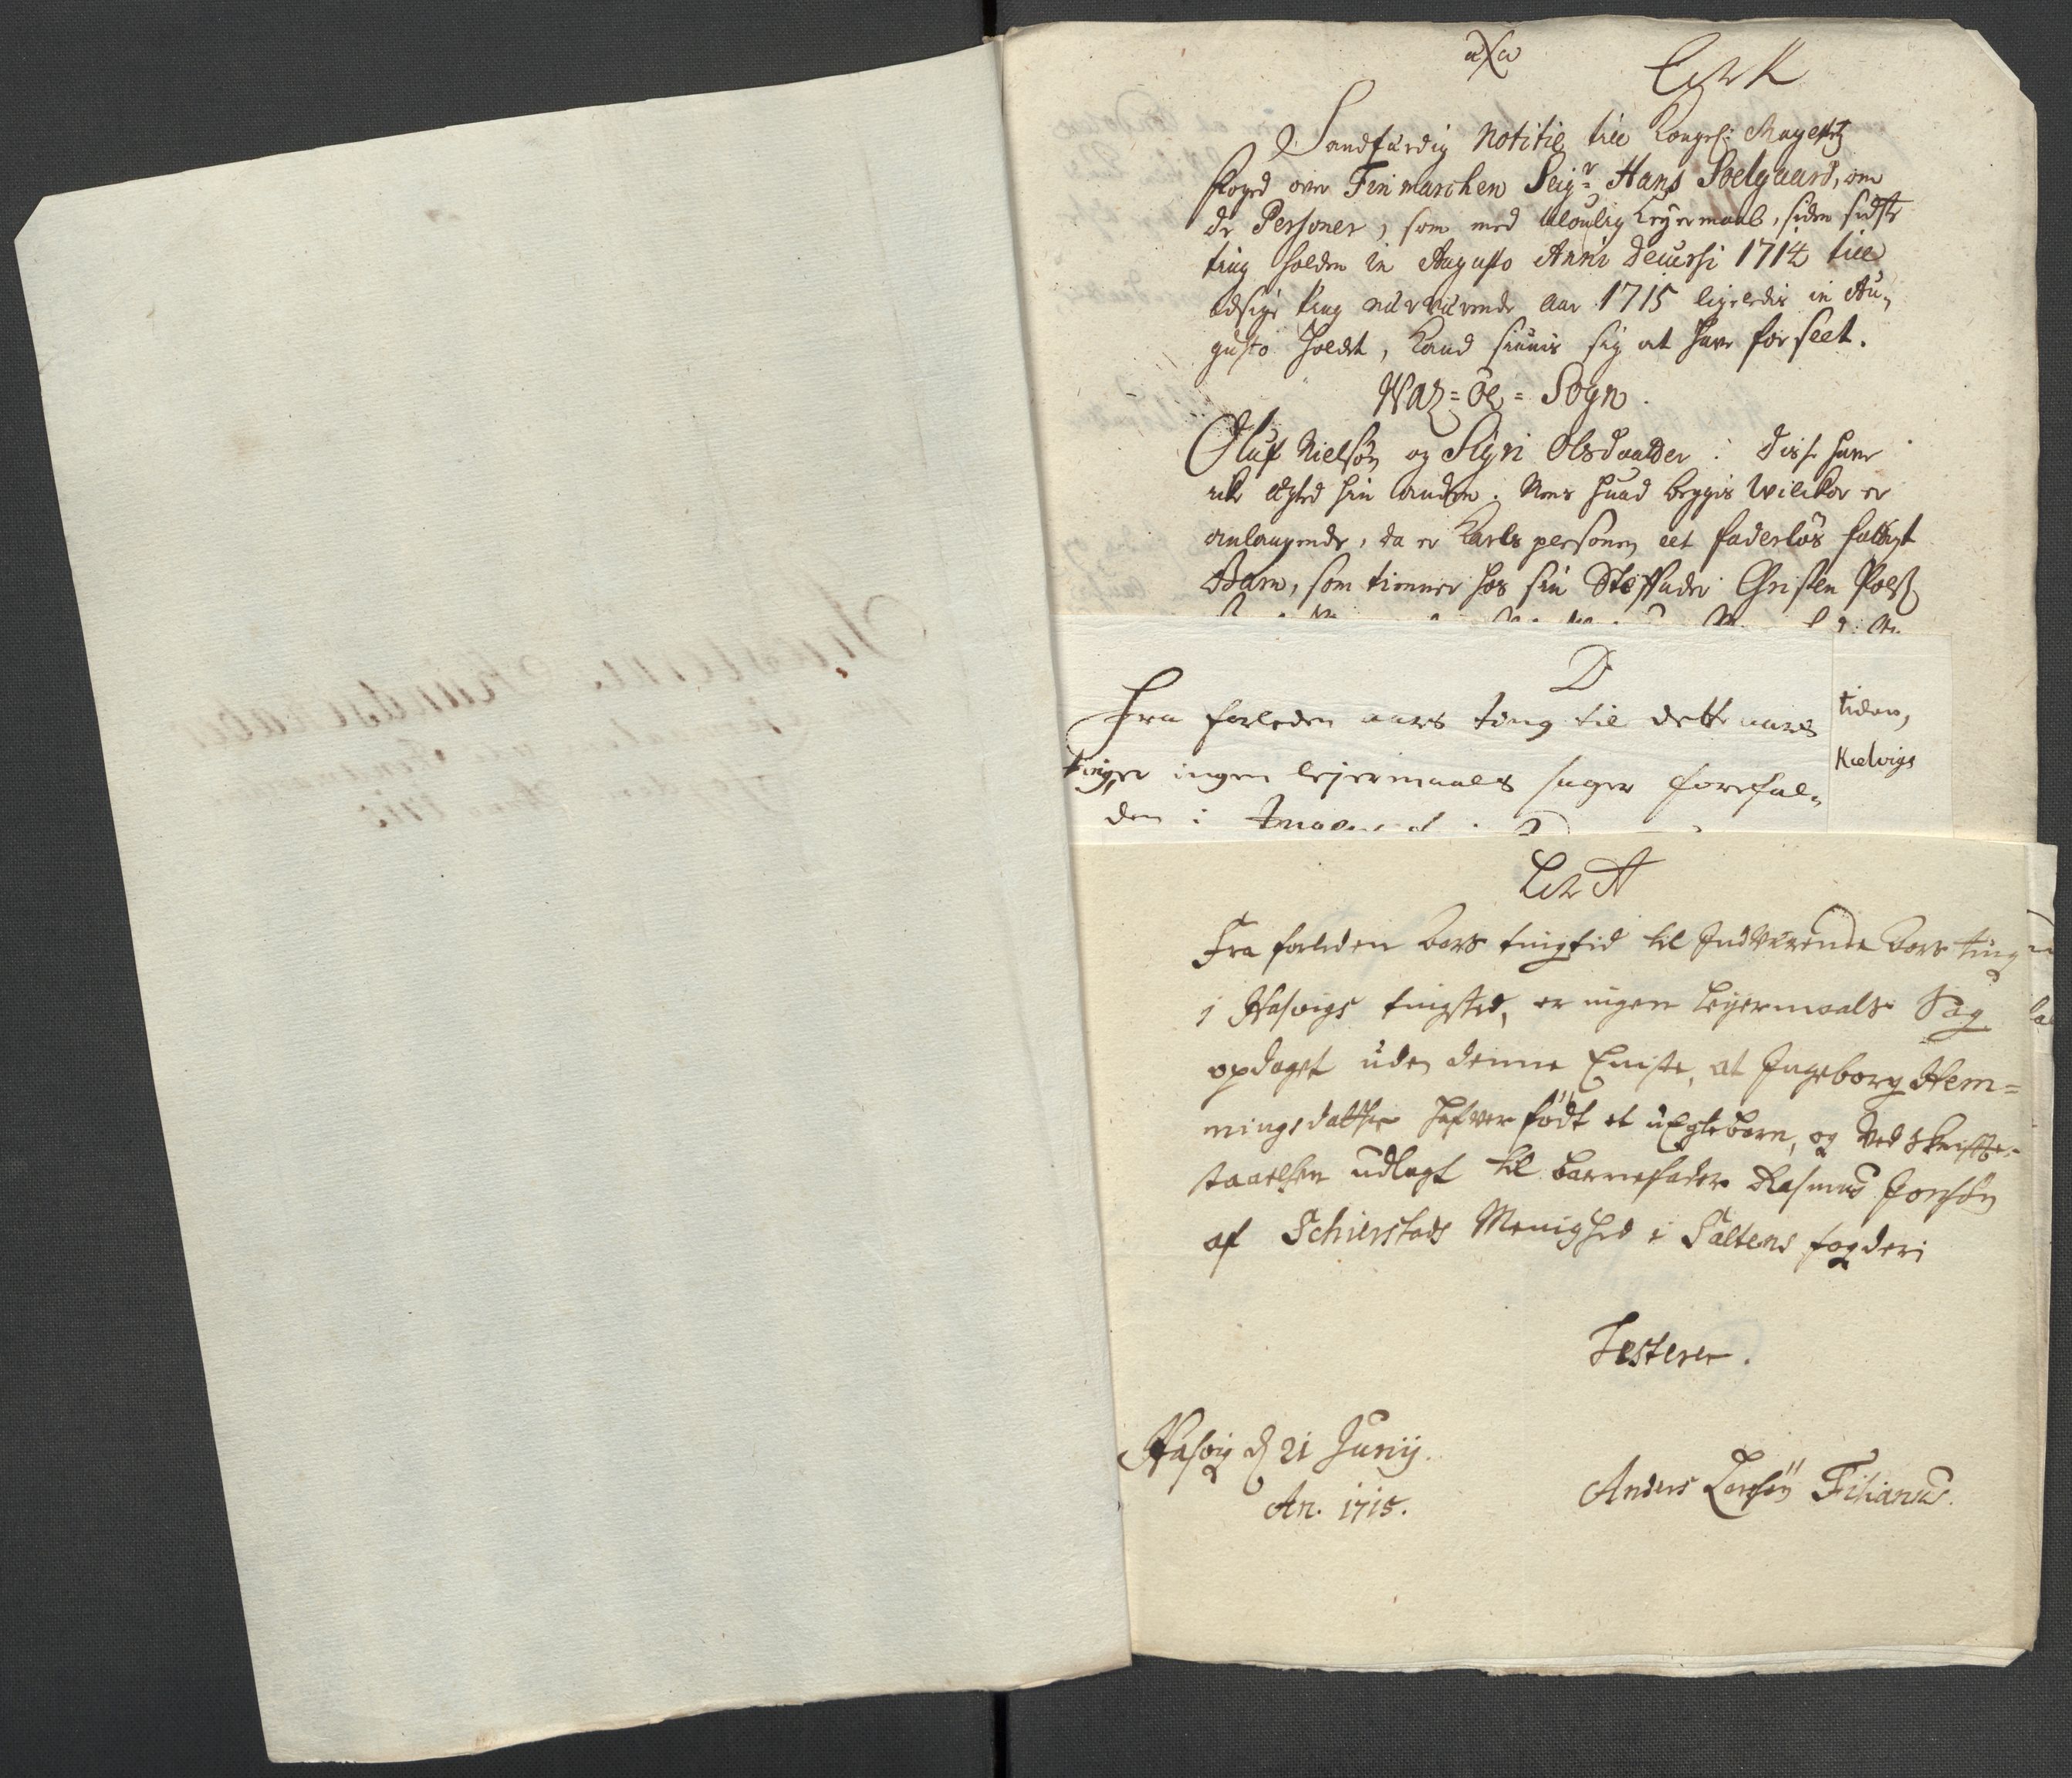 Litr K
Sandfærdig Notitie till Kongel: Mayestetz
foged over Finmarchen Seigr. Hans Soelgaard, om
de Personer, som med Uloulig Leyermaal, siden sidste
ting holden in Augusto Anni Decursi 1714 till
ting nærværende Aar 1715 ligeledis in Au-
gusto holdt, kand findis sig at have forseet.
Waz=Öe=Sogn.
Oluf Nielsøn og Sigri Olsdaatter: disse have
hin anden. Mens huad beggis Vilckor er
anlangende, da er Karls personen eet faderløs fattigt
Barn, som tienner hos sin Stiffader Christen Poels.
D
Fra forleden aars ting til dette aars
ting, er ingen leiermaals sager forefal-
den i
tiden,
Kielvigs
Litr A
Fra forleden Aars tingtid til Indverende Aars ting
i Hasvigs tingsted, er ingen Leyermaals Sag
opdaget uden denne Eniste, at Ingeborg Hem=
mingsdatter hafver födt et uEgte barn, og ved skrifte-
staaelsen udlagt til barnefader Rasmus Jonsøn
af Schierstads Menighed i Saltens fogderi
Testerer.
Hasvig d 21 Junij.
An. 1715.
Anders Larsøn Titianus.